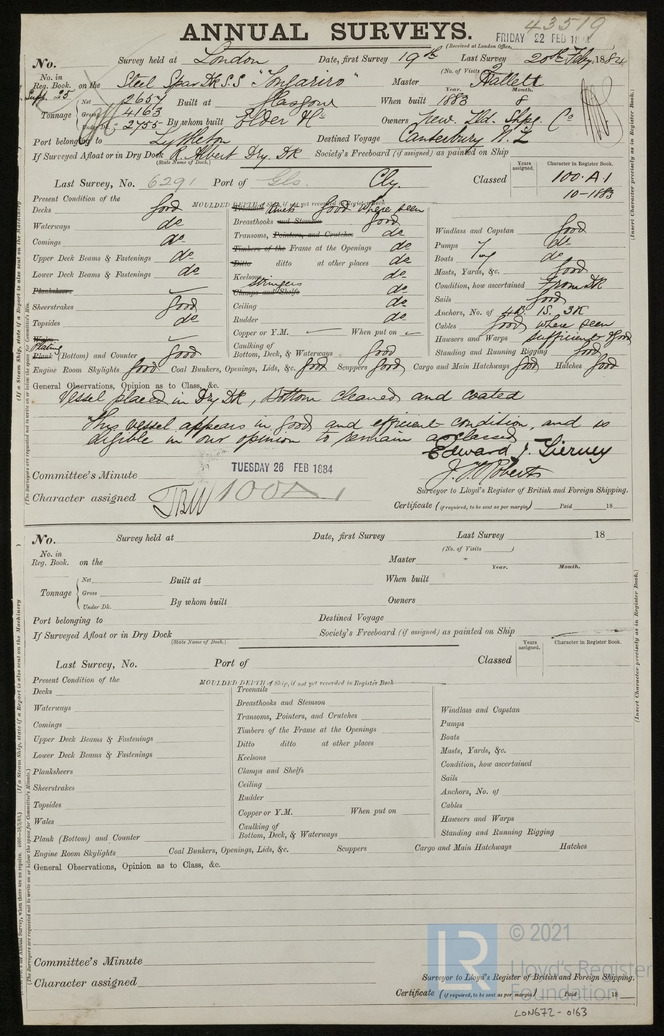 43519
ANNUAL SURVEYS.
(Received at London Office,
FRIDAY 22 FEB 18
No. Survey held at London Date, first Survey 19th Last Survey 20th Feby 1884
(No. of Visits
No. in Reg. Book. on the Steel Spar Dk S.S "Tongariro" Master Hallett
Supp. 25
Year. Month.
Tonnage Net 2657 Built at Glasgow When built 1883 8
Gross 4163
Under Dk. 2755 By whom built Elder &Co Owners New Zld. Shpg. Co
Port belonging to Lyttleton Destined Voyage Canterbury N.Z
If Surveyed Afloat or in Dry Dock R. Albert Dry Dk Society's Freeboard (if assigned) as painted on Ship
(State Name of Dock.)
Years assigned. Character in Register Book.
Last Survey, No. 6291 Port of Gls. Cly. Classed 100.A1
10-1183
Present Condition of the
MOULDED DEPTH of Ship, if not yet recorded in Register Book
Decks Good
Waterways do
Comings do
Upper Deck Beams & Fastenings do
Lower Deck Beams & Fastenings do
Planksheers
Sheerstrakes Good
Topsides do
Wales
Plating
Plank (Bottom) and Counter Good
good where seen
Breasthooks and Stemson Good
Transoms, Pointers, and Crutches do
Timbers of the Frame at the Openings do
Ditto ditto at other places do
Keelsons do
Stringers
Clamps and Shelfs do
Ceiling do
Rudder do
Copper or Y.M. — When put on —
Caulking of
Bottom, Deck, & Waterways Good
Windlass and Capstan Good
Pumps do
Boats do
Masts, Yards, &c. Good
Condition, how ascertained From Dk
Sails Good
Anchors, No. of 4B. 1S. 3K
Cables Good where seen
Hawsers and Warps sufficient & good
Standing and Running Rigging Good
Engine Room Skylights Good Coal Bunkers, Openings, Lids, &c. Good Scuppers Good Cargo and Main Hatchways Good Hatches Good
General Observations, Opinion as to Class, &c.
Vessel placed in Dry Dk, bottom cleaned and coated
This vessel appears in good and efficient condition, and is
eligible in our opinion to remain as classed
Edward J. Tierney
J. W. Roberts
TUESDAY 26 FEB 1884
Committee's Minute
Surveyor to Lloyd's Register of British and Foreign Shipping.
Character assigned 100A1
Certificate (if required, to be sent as per margin) Paid 18
No. Survey held at Date, first Survey Last Survey 18
(No. of Visits )
No. in Reg. Book. on the Master
Year. Month.
Tonnage Net Built at When built
Gross
Under Dk. By whom built Owners
Port belonging to Destined Voyage
If Surveyed Afloat or in Dry Dock Society's Freeboard (if assigned) as painted on Ship
(State Name of Dock.)
Years assigned. Character in Register Book.
Last Survey, No. Port of Classed
Present Condition of the
MOULDED DEPTH of Ship, if not yet recorded in Register Book
Decks
Waterways
Comings
Upper Deck Beams & Fastenings
Lower Deck Beams & Fastenings
Planksheers
Sheerstrakes
Topsides
Wales
Plank (Bottom) and Counter
Treenails
Breasthooks and Stemson
Transoms, Pointers, and Crutches
Timbers of the Frame at the Openings
Ditto ditto at other places
Keelsons
Clamps and Shelfs
Ceiling
Rudder
Copper or Y.M. When put on
Caulking of
Bottom, Deck, & Waterways
Windlass and Capstan
Pumps
Boats
Masts, Yards, &c.
Condition, how ascertained
Sails
Anchors, No. of
Cables
Hawsers and Warps
Standing and Running Rigging
Engine Room Skylights Coal Bunkers, Openings, Lids, &c. Scuppers Cargo and Main Hatchways Hatches
General Observations, Opinion as to Class, &c.
Committee's Minute
Character assigned
Surveyor to Lloyd's Register of British and Foreign Shipping.
Certificate (if required, to be sent as per margin) Paid 18
LR © 2021
Lloyd's Register
Foundation
LON672-0163
(Insert Character precisely as in Register Book.)
(Insert Character precisely as in Register Book.)